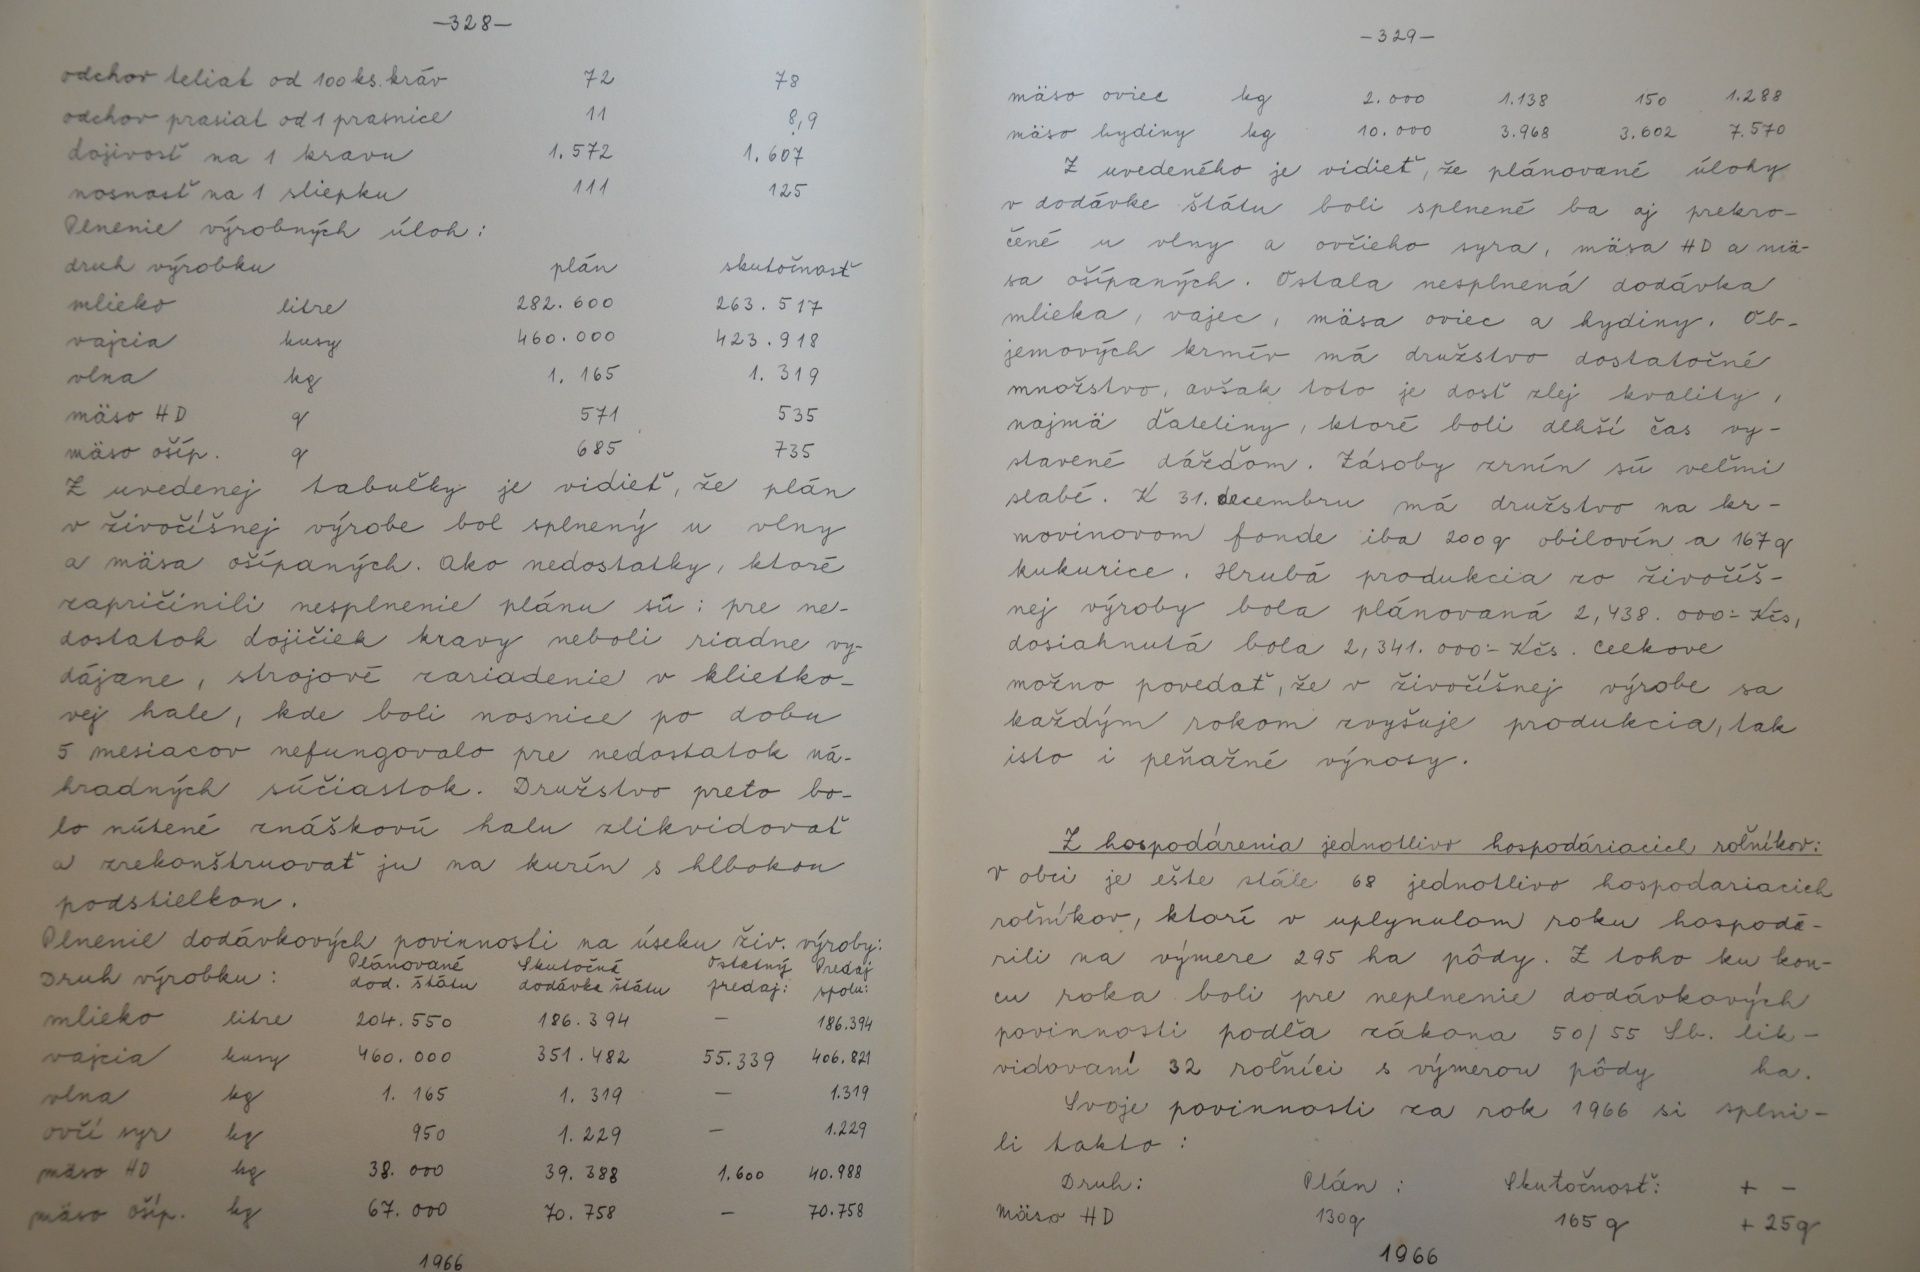 -328-
odchov teliat od 100 ks. kráv 72 78
odchov prasiat od 1 prasnice 11 8,9
dojivosť na 1 kravu 1.572 1.607
nosnosť na 1 sliepku 111 125
Plnenie výrobných úloh:
druh výrobku plán skutočnosť
mlieko litre 282.600 263.517
vajcia kusy 460.000 423.918
vlna kg 1.165 1.319
mäso HD q 571 535
mäso ošíp. q 685 735
Z uvedenej tabuľky je vidieť, že plán
v živočíšnej výrobe bol splnený u vlny
a mäsa ošípaných. Ako nedostatky, ktoré
zapričinili nesplnenie plánu sú: pre ne-
dostatok dojičiek kravy neboli riadne vy-
dájane, strojové zariadenie v klietko-
vej hale, kde boli nosnice po dobu
5 mesiacov nefungovalo pre nedostatok ná-
hradných súčiastok. Družstvo preto bo-
lo nútené znáškovú halu zlikvidovať
a zrekonštruovať ju na kurín s hlbokou
podstielkou.
Plnenie dodávkových povinnosti na úseku živ. výroby:
Druh výrobku: Plánované dod. štátu Skutočná dodávka štátu Ostatný predaj: Predaj spolu:
mlieko litre 204.550 186.394 - 186.394
vajcia kusy 460.000 351.482 55.339 406.821
vlna kg 1.165 1.319 - 1.319
ovčí syr kg 950 1.229 - 1.229
mäso HD kg 38.000 39.388 1.600 40.988
mäso ošíp. kg 67.000 70.758 - 70.758
1966
-329-
mäso oviec kg 2.000 1.138 150 1.288
mäso hydiny kg 10.000 3.968 3.602 7.570
Z uvedeného je vidieť, že plánované úlohy
v dodávke štátu boli splnené ba aj prekro-
čené u vlny a ovčieho syra, mäsa HD a mä-
sa ošípaných. Ostala nesplnená dodávka
mlieka, vajec, mäsa oviec a hydiny. Ob-
jemových krmív má družstvo dostatočné
množstvo, avšak toto je dosť zlej kvality,
najmä ďateliny, ktoré boli dlhší čas vy-
stavené dážďom. Zásoby zrnín sú veľmi
slabé. K 31. decembru má družstvo na kr-
movinovom fonde iba 200q obilovín a 167q
kukurice. Hrubá produkcia zo živočíš-
nej výroby bola plánovaná 2,438.000.- Kčs,
dosiahnutá bola 2,341.000.- Kčs. Celkove
možno povedať, že v živočíšnej výrobe sa
každým rokom zvyšuje produkcia, tak
isto i peňažné výnosy.
Z hospodárenia jednotlivo hospodáriacich roľníkov:
V obci je ešte stále 68 jednotlivo hospodariacich
roľníkov, ktorí v uplynulom roku hospodá-
rili na výmere 295 ha pôdy. Z toho ku kon-
cu roka boli pre neplnenie dodávkových
povinnosti podľa zákona 50/55 Sb. lik-
vidovaní 32 roľníci s výmerou pôdy ha.
Svoje povinnosti za rok 1966 si splni-
li takto:
Druh: Plán: Skutočnosť: + -
Mäso HD 130q 165 q + 25q
1966